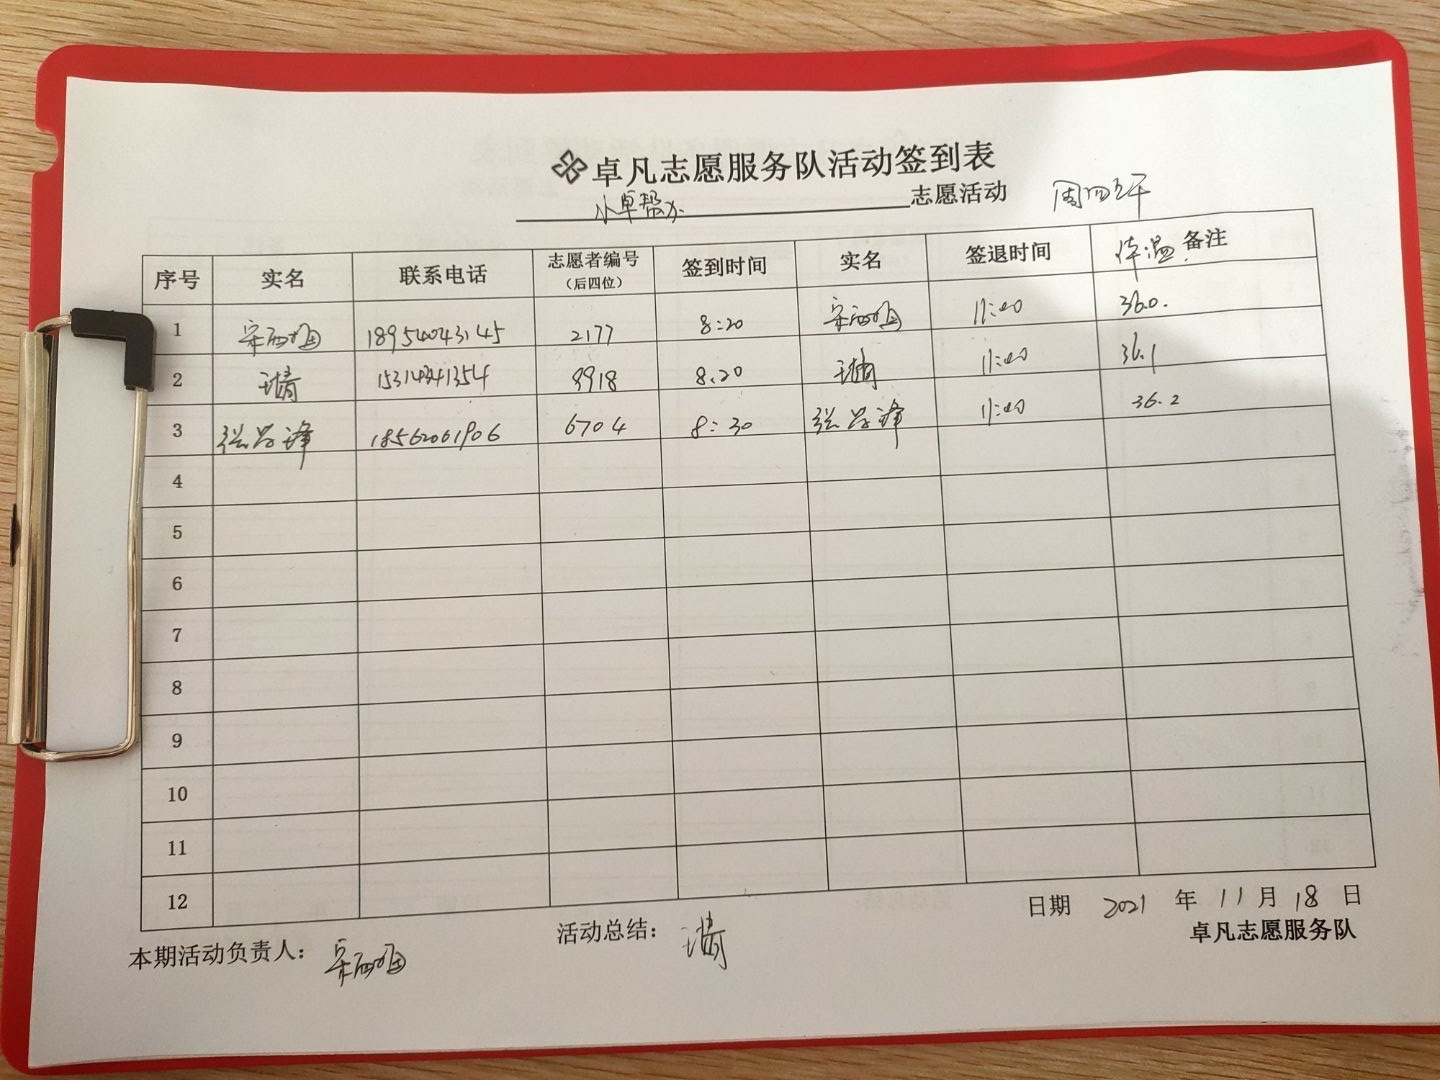 卓凡志愿服务队活动签到表
小卓帮办 志愿活动 周四上午
序号 实名 联系电话 志愿者编号（后四位） 签到时间 实名 签退时间 体温 备注
1 18954043145 2177 8:20 11:40 36.0.
2 8918 8:20 11:40 36.1
3 张 锋 18562061906 6704 8:30 张 锋 11:40 36.2
4
5
6
7
8
9
10
11
12
日期 2021 年 11 月 18 日
本期活动负责人： 活动总结：
卓凡志愿服务队